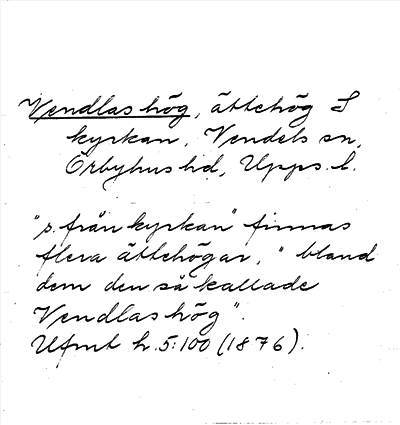 Vendlas hög, ättehög S
kyrkan, Vendels sn,
Örbyhus hd, Upps. l.
"s. från kyrkan" finnas
flera ättehögar, "bland
dem den så kallade
Vendlas hög".
Ufmt h. 5:100 (1876).